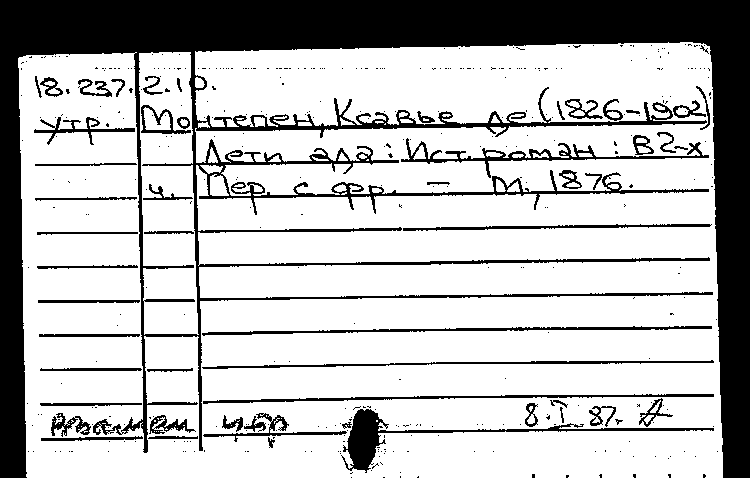 18.237.2.10.
утр. Монтепен, Ксавье де (1826-1902)
Дети ада : Ист. роман : В 2-х
ч. Пер. с фр. – М., 1876.
8.I.87.